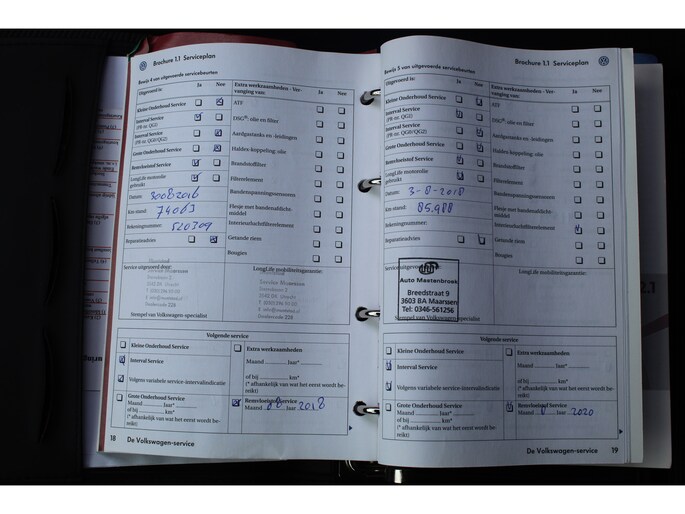 Brochure 1.1 Serviceplan
Bewijs 4 van uitgevoerde servicebeurten
Uitgevoerd is: Ja Nee
Extra werkzaamheden - Ver-
vanging van: Ja Nee
Kleine Onderhoud Service
Interval Service
(PR nr. QG1)
Interval Service
(PR nr. QG0/QG2)
Grote Onderhoud Service
Remvloeistof Service
LongLife motorolie
gebruikt
Datum: 30082016
Km-stand: 74063
Rekeningnummer: 520309
Reparatieadvies
ATF
DSG®: olie en filter
Aardgastanks en -leidingen
Haldex-koppeling: olie
Brandstoffilter
Filterelement
Bandenspanningssensoren
Flesje met bandenafdicht-
middel
Interieurluchtfilterelement
Getande riem
Bougies
Service uitgevoerd door:
LongLife mobiliteitsgarantie:
Stempel van Volkswagen-specialist
Volgende service
Kleine Onderhoud Service
Interval Service
Volgens variabele service-intervalindicatie
Grote Onderhoud Service
Maand Jaar*
of bij km*
(* afhankelijk van wat het eerst wordt be-
reikt)
Extra werkzaamheden
Maand Jaar*
of bij km*
(* afhankelijk van wat het eerst wordt be-
reikt)
Remvloeistof Service
Maand 08 Jaar 2018
18 De Volkswagen-service
Brochure 1.1 Serviceplan
Bewijs 5 van uitgevoerde servicebeurten
Uitgevoerd is: Ja Nee
Extra werkzaamheden - Ver-
vanging van: Ja Nee
Kleine Onderhoud Service
Interval Service
(PR nr. QG1)
Interval Service
(PR nr. QG0/QG2)
Grote Onderhoud Service
Remvloeistof Service
LongLife motorolie
gebruikt
Datum: 3-8-2018
Km-stand: 85.988
Rekeningnummer:
Reparatieadvies
ATF
DSG®: olie en filter
Aardgastanks en -leidingen
Haldex-koppeling: olie
Brandstoffilter
Filterelement
Bandenspanningssensoren
Flesje met bandenafdicht-
middel
Interieurluchtfilterelement
Getande riem
Bougies
Service uitgevoerd
LongLife mobiliteitsgarantie:
Auto Maatenbroek
Breedstraat 9
3603 BA Maarssen
Tel: 0346-561256
Stempel van Volkswagen-specialist
Volgende service
Kleine Onderhoud Service
Interval Service
Volgens variabele service-intervalindicatie
Grote Onderhoud Service
Maand Jaar*
of bij km*
(* afhankelijk van wat het eerst wordt be-
reikt)
Extra werkzaamheden
Maand Jaar*
of bij km*
(* afhankelijk van wat het eerst wordt be-
reikt)
Remvloeistof Service
Maand Jaar 2020
De Volkswagen-service 19